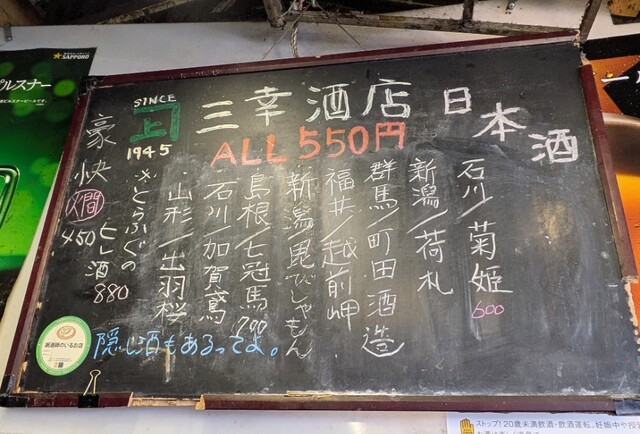 SINCE
上
1945
三幸酒店 日本酒
ALL 550円
石川/菊姫
600
新潟/荷札
群馬/町田酒造
福井/越前岬
新潟/毘びしゃもん
島根/七冠馬
790
石川/加賀鳶
山形/出羽桜
さとらふぐの
ヒレ酒
880
豪快
450
隠し酒もあるってよ。
SAPPORO
ピルスナー
ストップ!20歳未満飲酒・飲酒運転。妊娠中や授